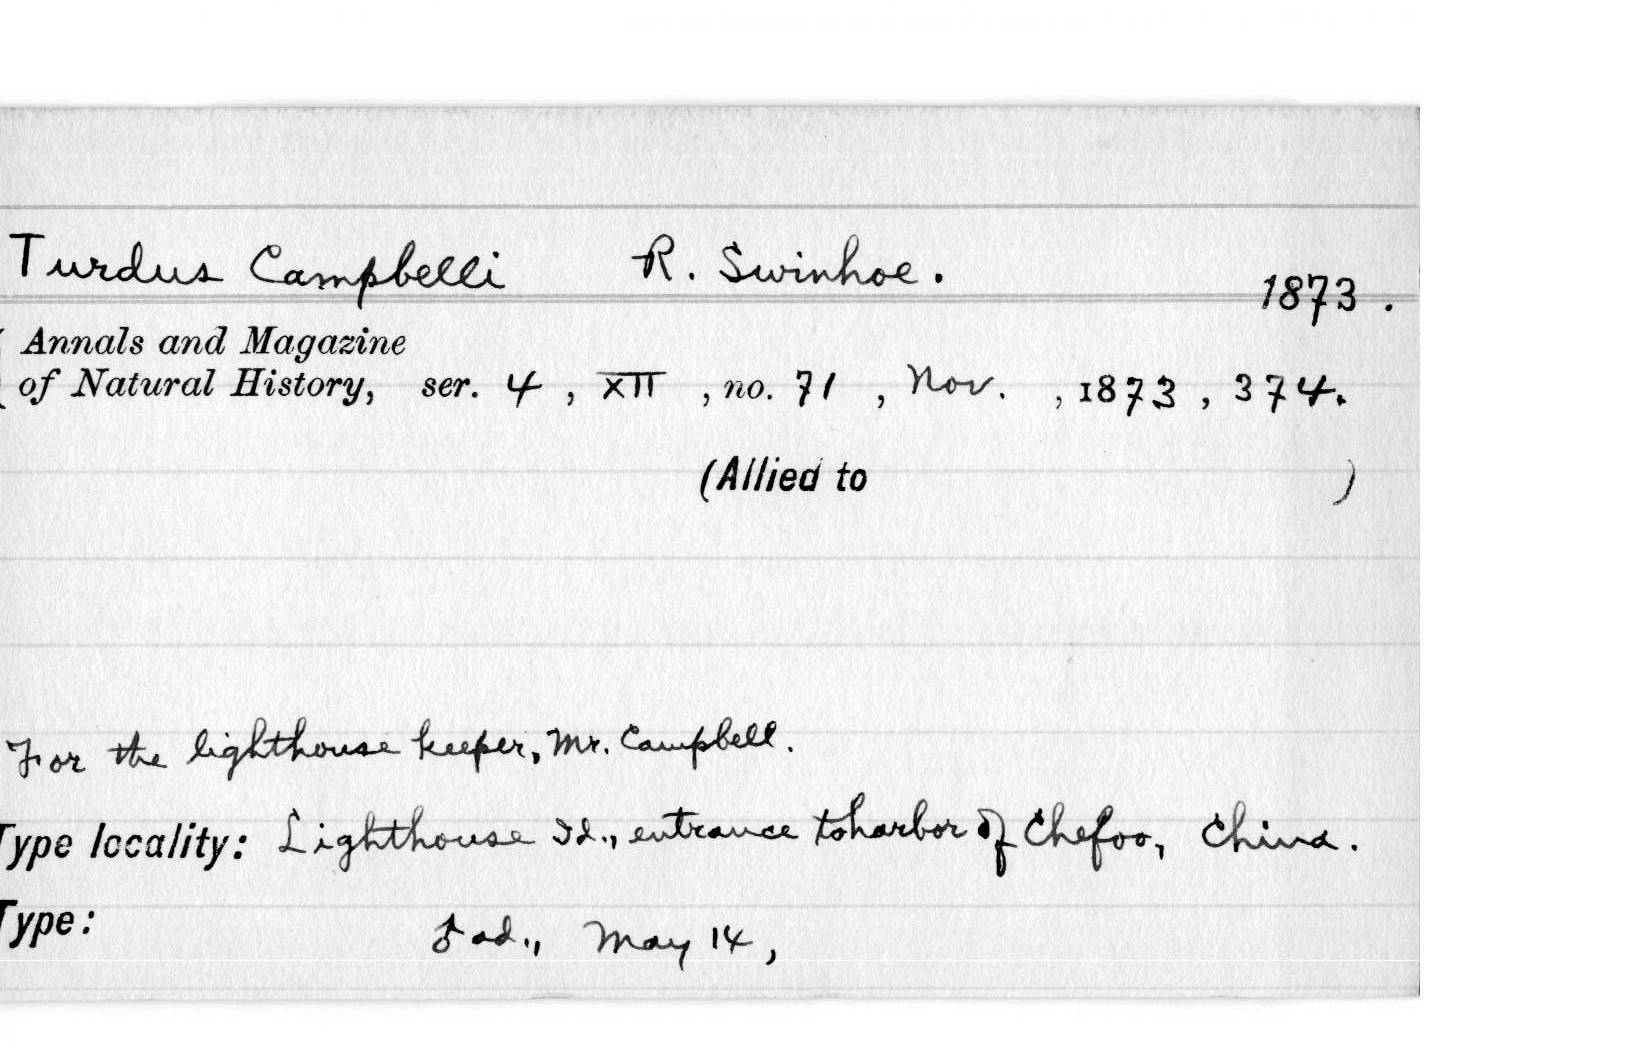 Turdus Campbelli R. Swinhoe.
1873.
Annals and Magazine
of Natural History, ser. 4, XII, no. 71, Nov., 1873, 374.
(Allied to )
For the lighthouse keeper, Mr. Campbell.
Type locality: Lighthouse Id., entrance to harbor of Chefoo, China.
Type: ♂ ad., May 14,